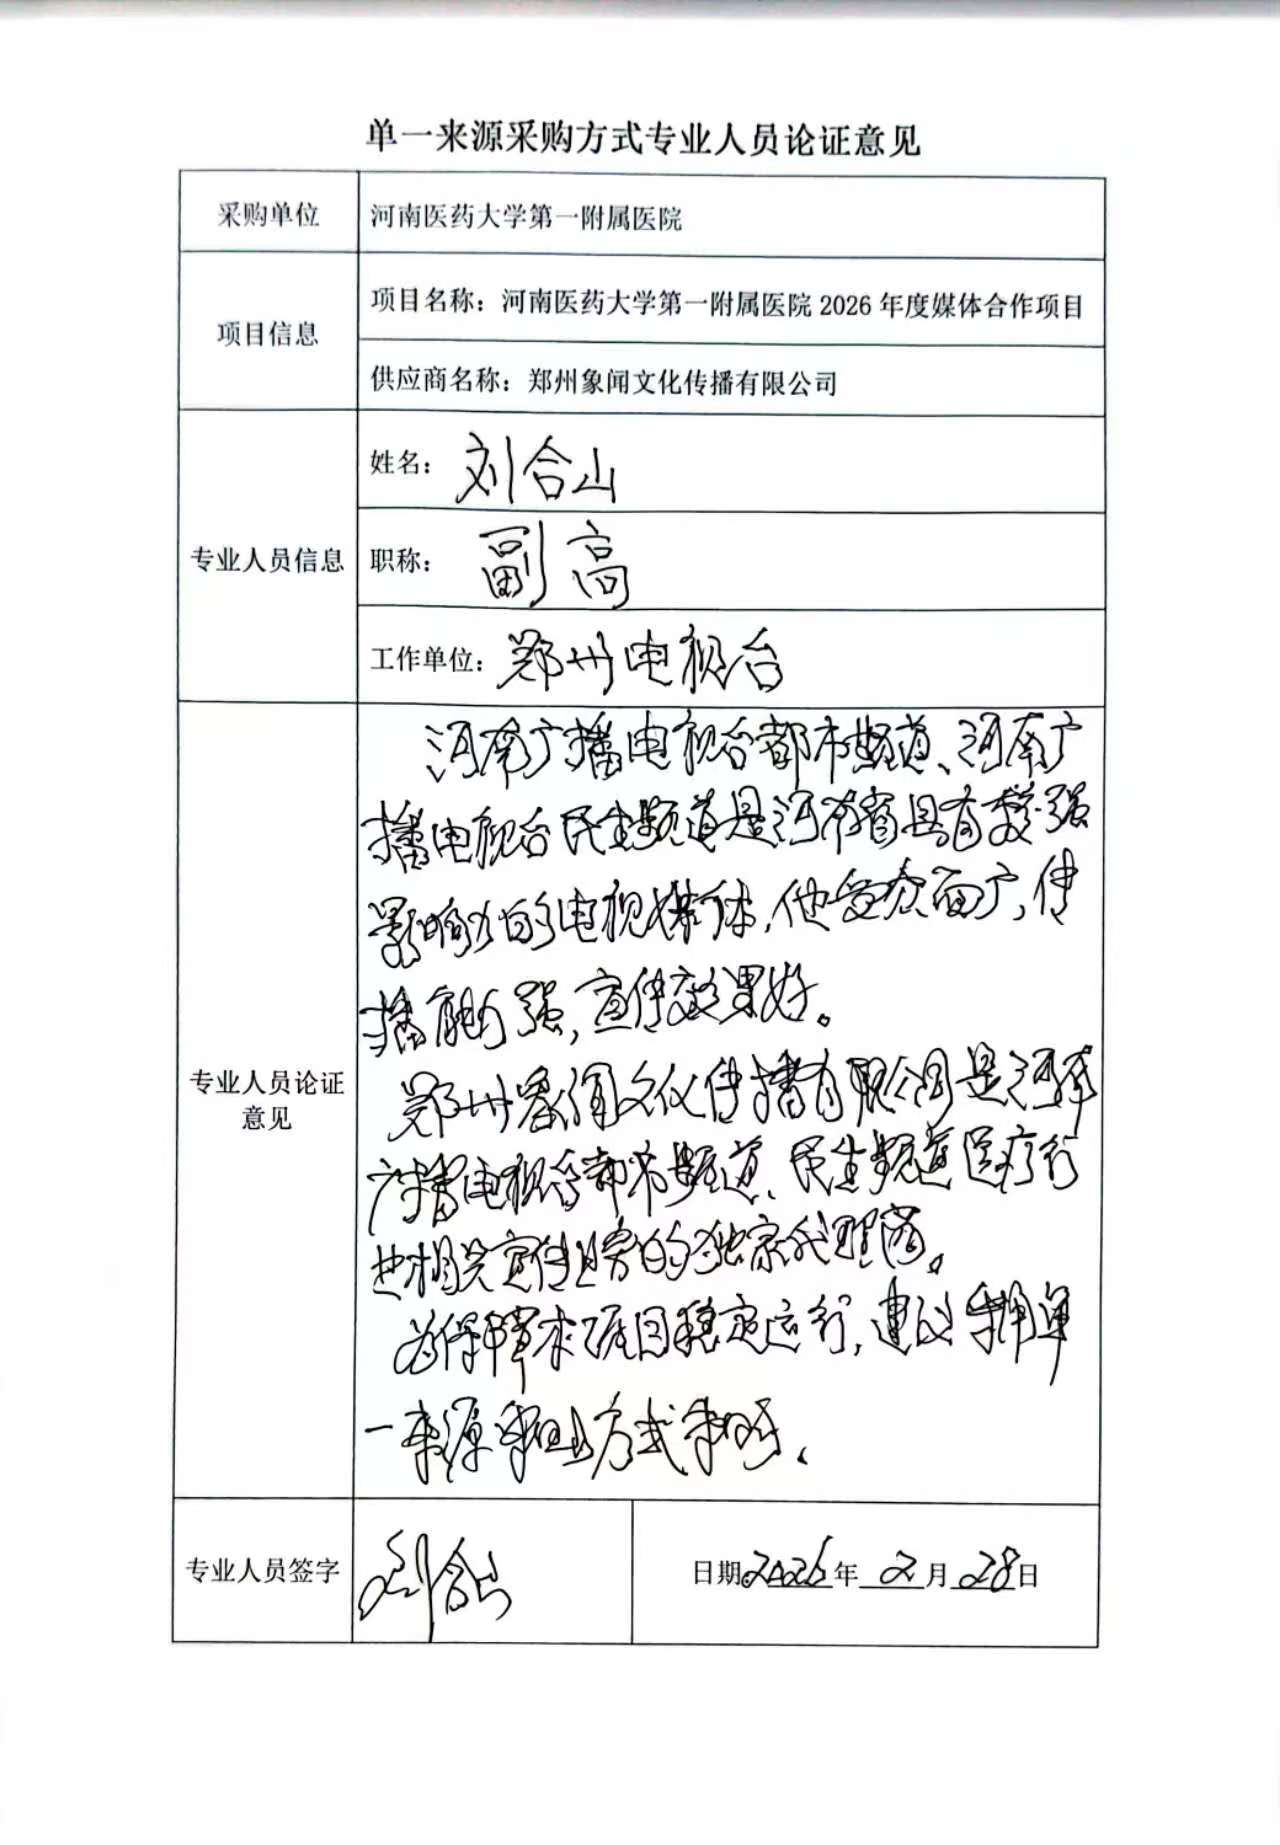 单一来源采购方式专业人员论证意见
采购单位 河南医药大学第一附属医院
项目信息 项目名称：河南医药大学第一附属医院 2026 年度媒体合作项目
供应商名称：郑州象闻文化传播有限公司
专业人员信息
姓名：刘合山
职称：副高
工作单位：郑州电视台
专业人员论证意见
河南广播电视台都市频道、河南广
播电视台民生频道是河南省具有较强
影响力的电视媒体，他受众面广，传
播能力强，宣传效果好。
郑州象闻文化传播有限公司是河南
广播电视台都市频道、民生频道医疗行
业相关宣传业务的独家代理商。
为保障本项目稳定运行，建议采用单
一来源采购方式采购。
专业人员签字 刘合山 日期 2026 年 2 月 28 日